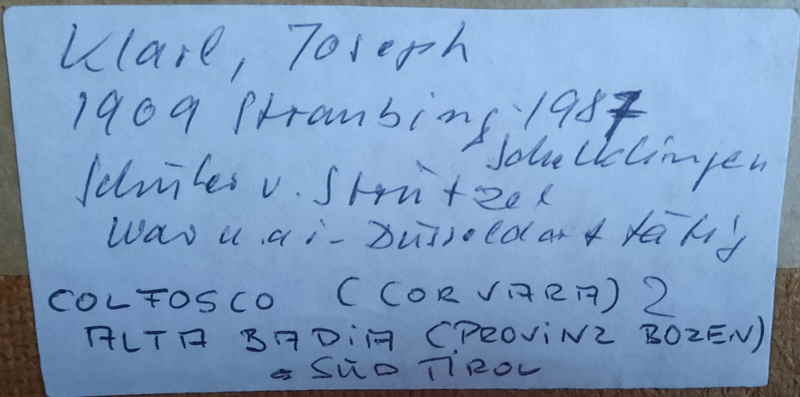 Klarl, Joseph
1909 Straubing - 1987
Schelklingen
Schüler v. Strützel
War u. a i- Düsseldorf tätig
COLFOSCO (CORVARA) 2
ALTA BADiA (PROViNZ BOZEN)
SÜD TiROL